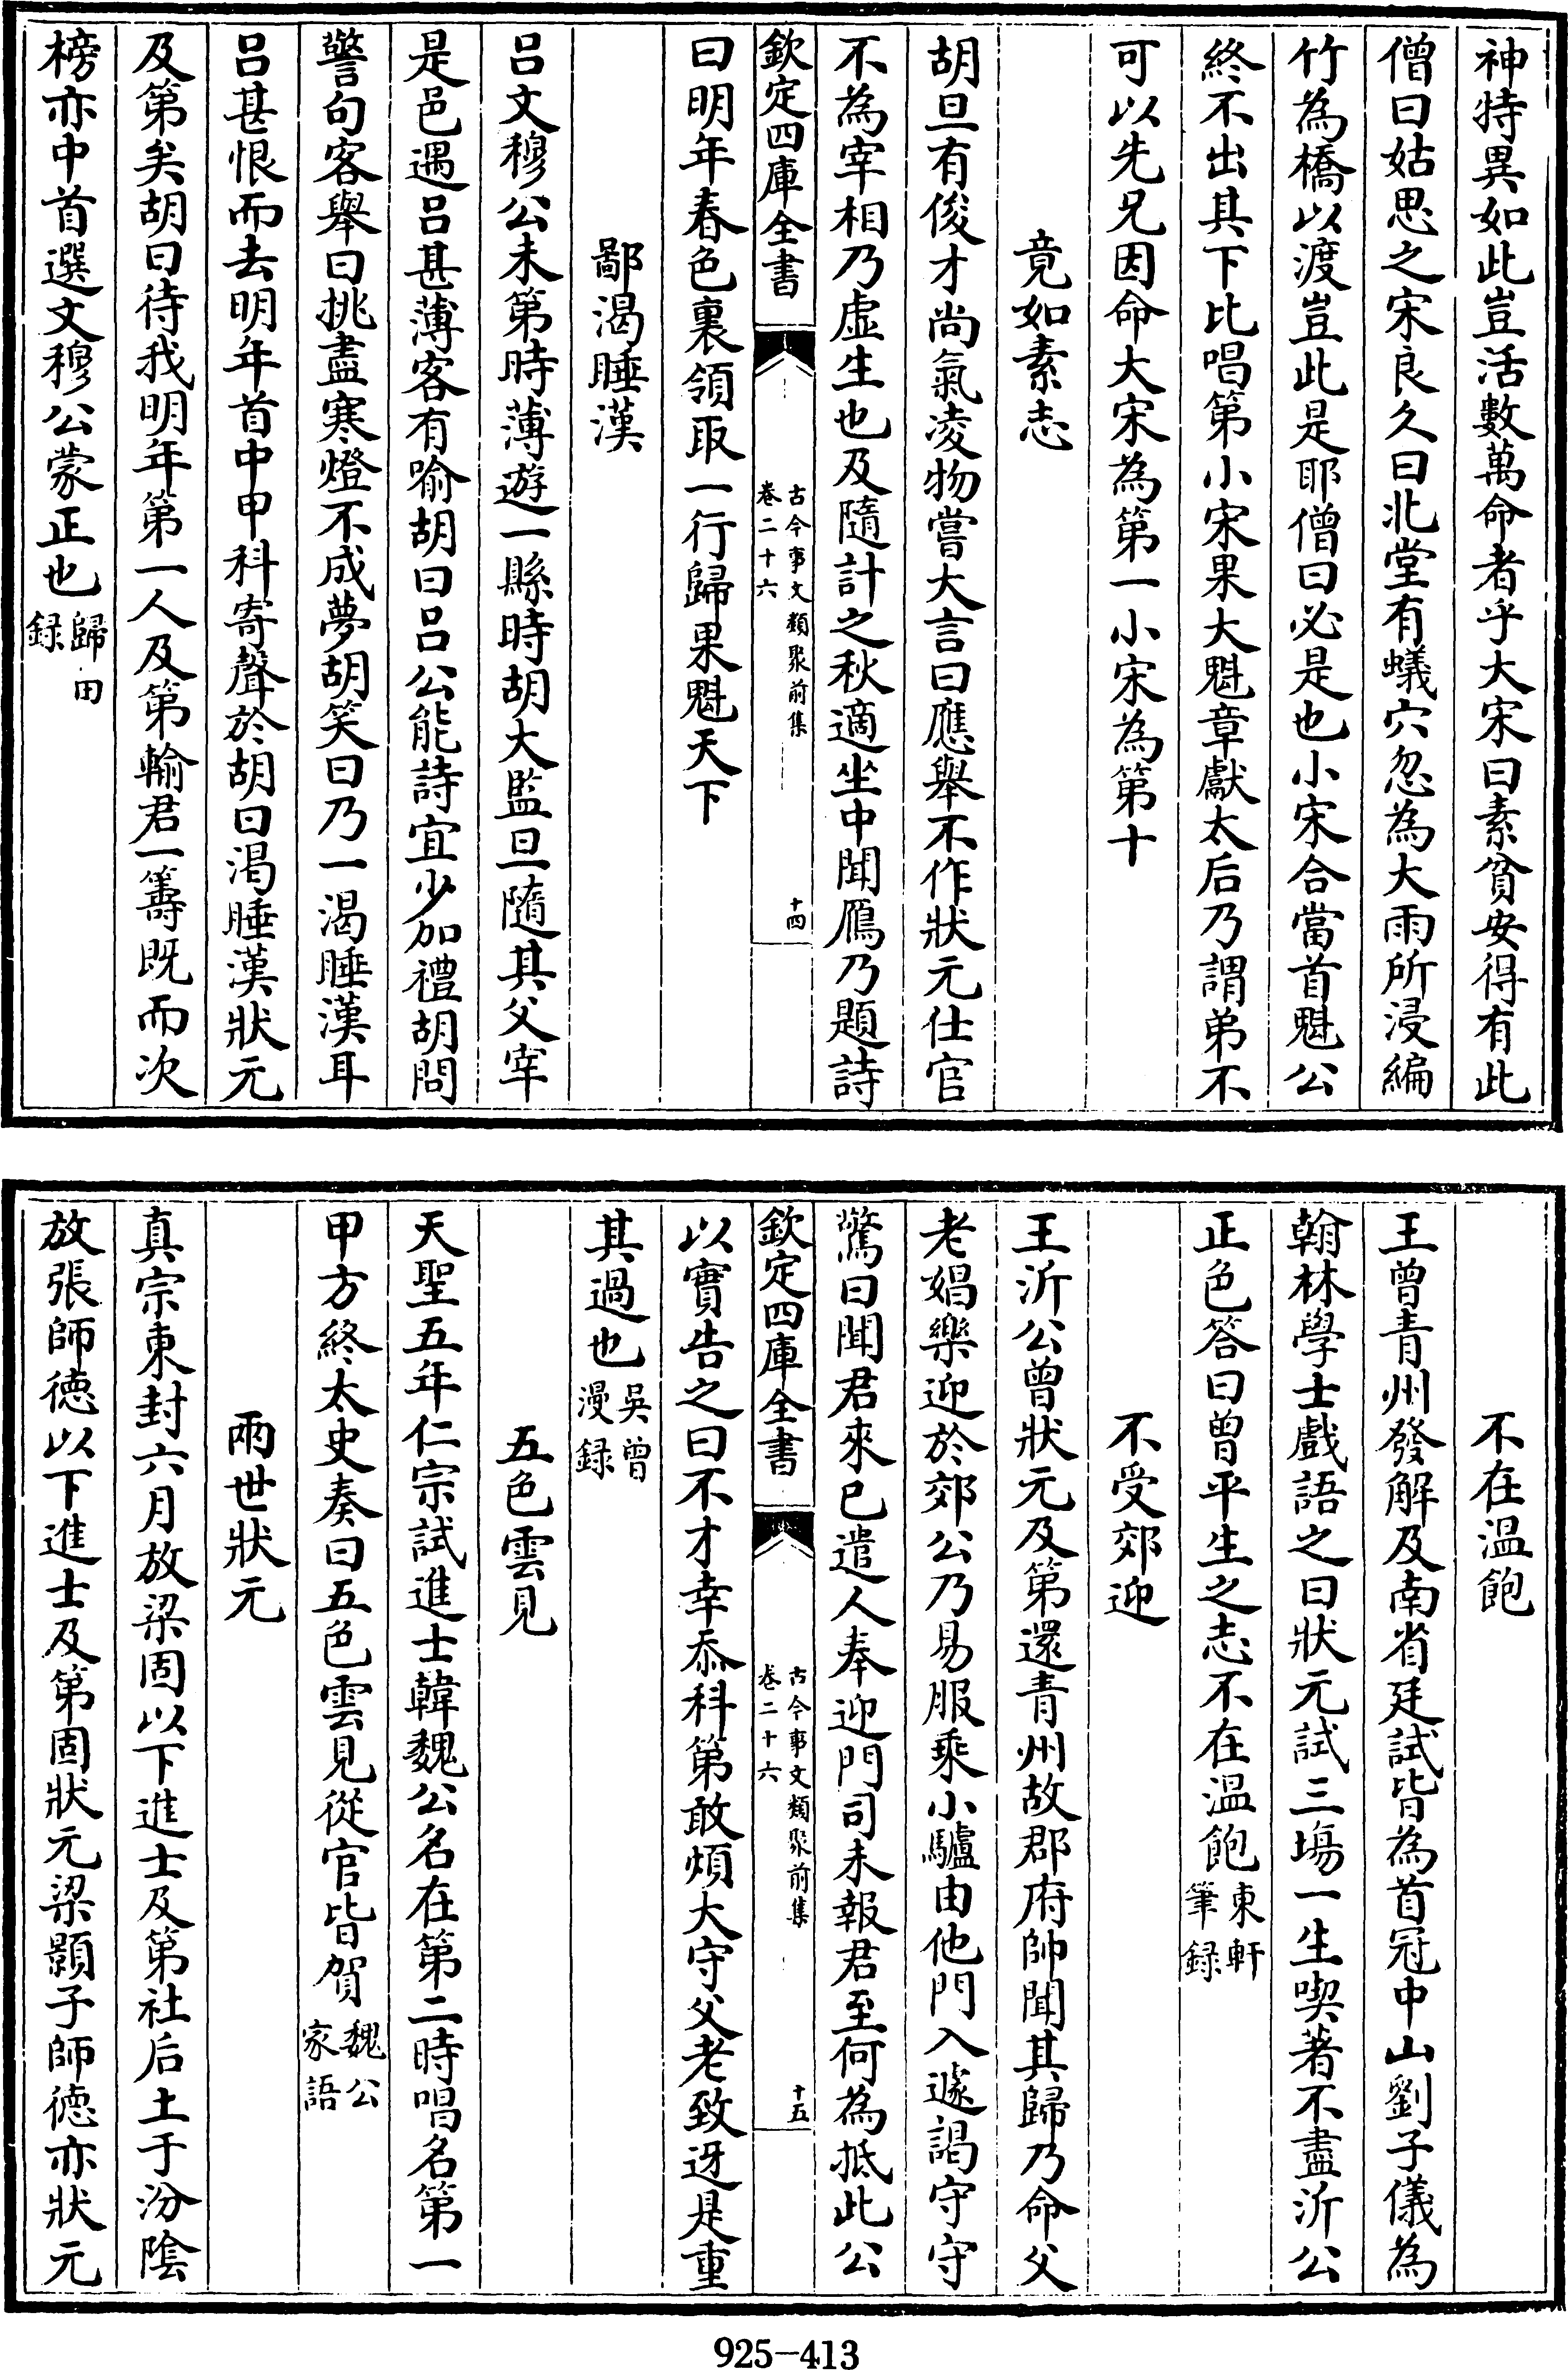 神特異如此豈活數萬命者乎大宋曰素貧安得有此
僧曰姑思之宋良久曰北堂有蟻穴忽為大雨所浸編
竹為橋以渡豈此是耶僧曰必是也小宋合當首魁公
終不出其下比唱第小宋果大魁章獻太后乃謂弟不
可以先兄因命大宋為第一小宋為第十
竟如素志
胡旦有俊才尚氣凌物嘗大言曰應舉不作狀元仕官
不為宰相乃虛生也及隨計之秋適坐中聞鴈乃題詩
欽定四庫全書
古今事文類聚前集
卷二十六
十四
曰明年春色裏領取一行歸果魁天下
鄙渴睡漢
呂文穆公未第時薄遊一縣時胡大監旦隨其父宰
是邑遇呂甚薄客有喻胡曰呂公能詩宜少加禮胡問
警句客舉曰挑盡寒燈不成夢胡笑曰乃一渴睡漢耳
呂甚恨而去明年首中甲科寄聲於胡曰渴睡漢狀元
及第矣胡曰待我明年第一人及第輸君一籌既而次
榜亦中首選文穆公蒙正也歸田
錄
不在溫飽
王曾青州發解及南省廷試皆為首冠中山劉子儀為
翰林學士戲語之曰狀元試三場一生喫著不盡沂公
正色答曰曾平生之志不在溫飽東軒
筆錄
不受郊迎
王沂公曾狀元及第還青州故郡府帥聞其歸乃命父
老娼樂迎於郊公乃易服乘小驢由他門入遽謁守守
驚曰聞君來已遣人奉迎門司未報君至何為抵此公
欽定四庫全書
古今事文類聚前集
卷二十六
十五
以實告之曰不才幸忝科第敢煩大守父老致迓是重
其過也吳曾
漫錄
五色雲見
天聖五年仁宗試進士韓魏公名在第二時唱名第一
甲方終太史奏曰五色雲見從官皆賀魏公
家語
兩世狀元
真宗東封六月放梁固以下進士及第社后土于汾陰
放張師德以下進士及第固狀元梁顥子師德亦狀元
925-413